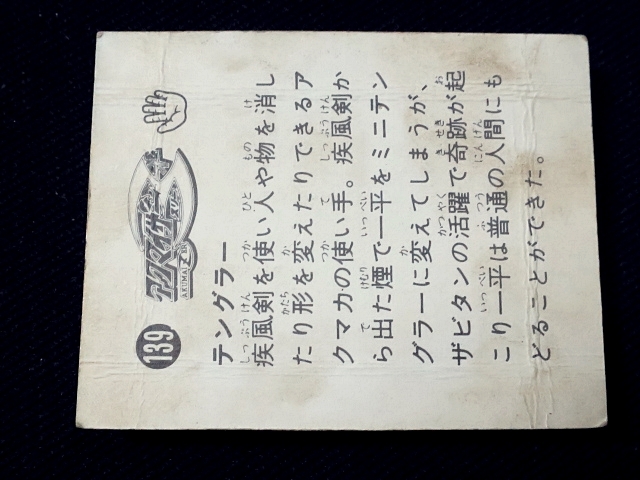 139
アクマイザー3
AKUMAIZER
テングラー
疾風剣を使い人や物を消し
たり形を変えたりできるア
クマカの使い手。疾風剣か
ら出た煙で一平をミニテン
グラーに変えてしまうが、
ザビタンの活躍で奇跡が起
こり一平は普通の人間にも
どることができた。